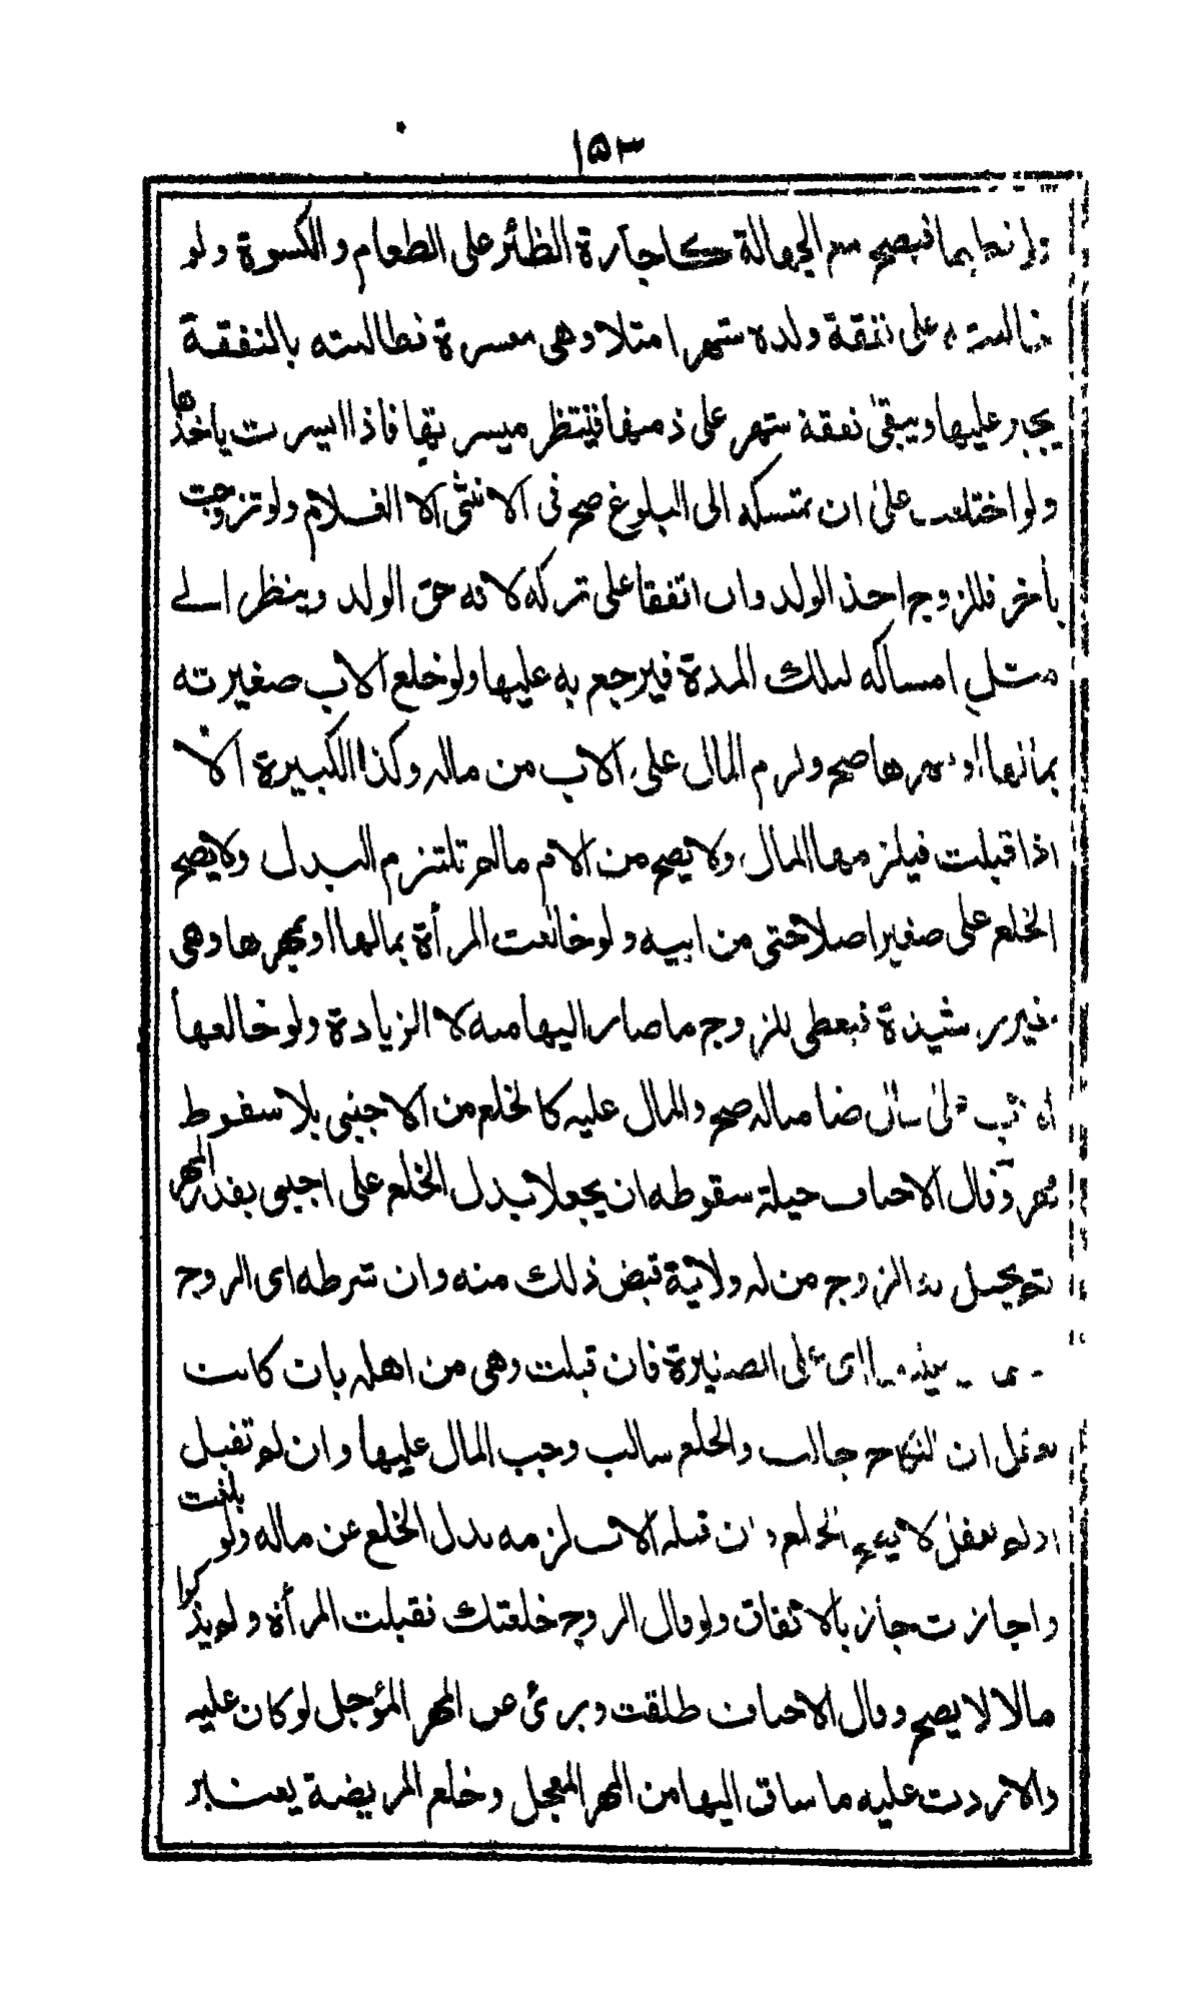 ١٥٣
فيصح مع الجهالة كاجارة الظئر على الطعام والكسوة ولو
خالعته على نفقة ولده شهرا مثلا وهى معسرة فطالبته بالنفقة
يجبر عليها ويبقى نفقة شهر على ذمتها فينتظر ميسرتها فاذا ايسرت ياخذها
ولو اختلعت على ان تمسكه الى البلوغ صح فى الانثى لا الغلام ولو تزوجت
بأخر فللزوج اخذ الولد وان اتفقا على تركه لانه حق الولد وينظر الے
مثل امساكه لتلك المدة فيرجع به عليها ولو خلع الاب صغيرته
بمالها او مهرها صح ولزم المال على الاب من ماله وكذا الكبيرة الا
اذا قبلت فيلزمها المال ولا يصح من الام مالم تلتزم البدل ولا يصح
الخلع على صغير اصلا حتى من ابيه ولو خالعت المرأة بمالها او بمهرها وهى
غير رشيدة فيعطى للزوج ما صار اليها منه لا الزيادة ولو خالعها
الاب على مال ضامنا له صح والمال عليه كالخلع من الاجنبى بلا سقوط
مهر وقال الاحناف حيلة سقوطه ان يجعلا بدل الخلع على اجنبى بقدر المهر
ثم يحيل به الزوج من له ولاية قبض ذلك منه وان شرطه اى الزوج
اى على الصغيرة فان قبلت وهى من اهله بان كانت
تعقل ان النكاح جالب والخلع سالب وجب المال عليها وان لم تقبل
او لم تعقل لا يصح الخلع وان قبله الاب لزمه بدل الخلع عن ماله ولو بلغت
واجازت جاز بالاتفاق ولو قال الزوج خلعتك فقبلت المرأة ولم يذكرا
مالا لا يصح وقال الاحناف طلقت وبرئ عن المهر المؤجل لو كان عليه
والا ردت عليه ما ساق اليها من المهر المعجل وخلع المريضة يعتبر